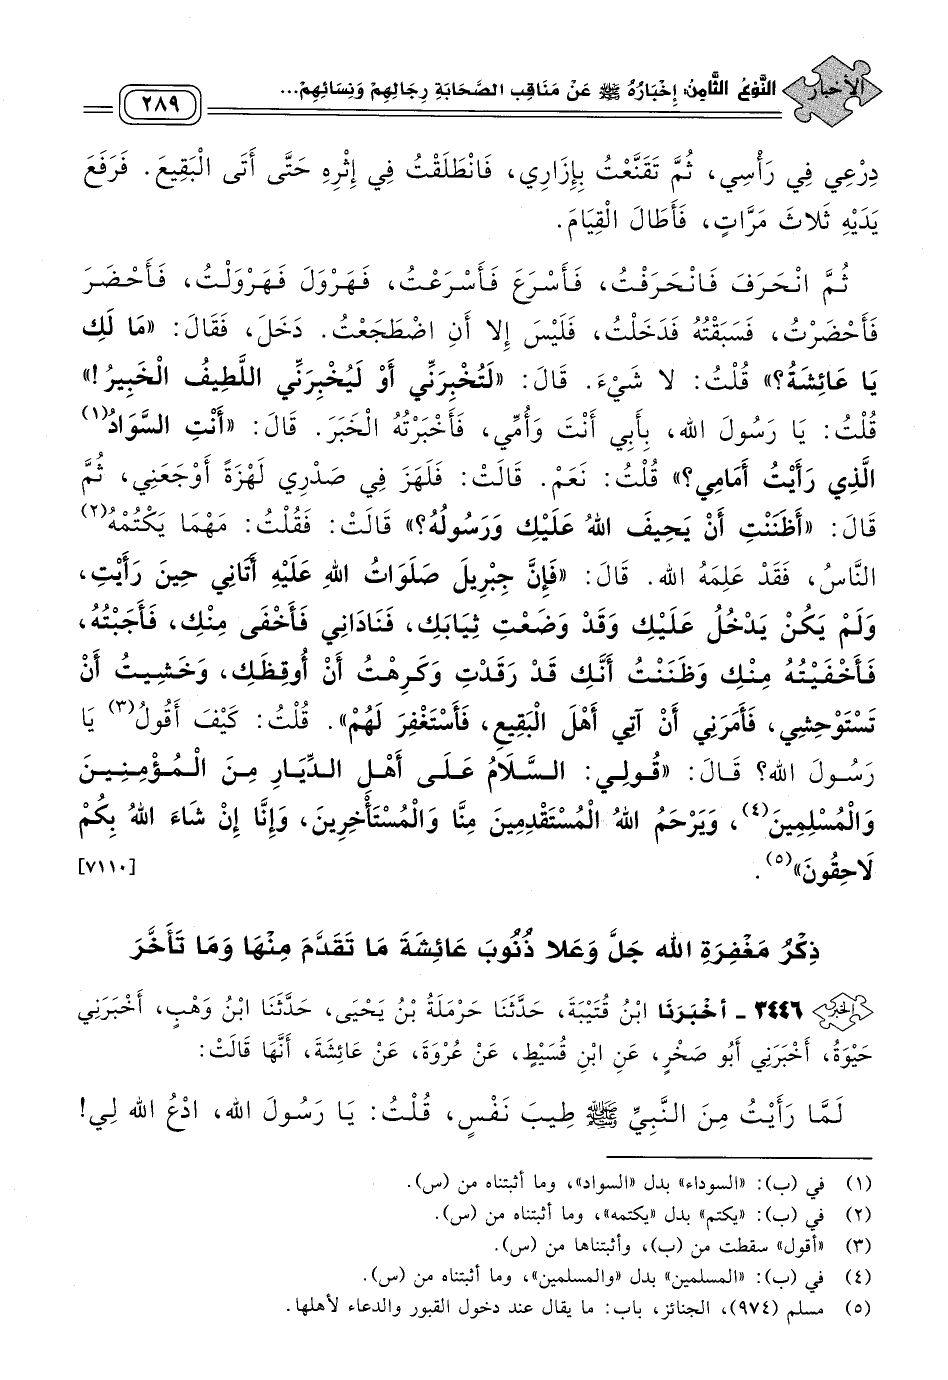 الأخبار
النَّوْعُ الثَّامِنُ: إخْبَارُهُ ﷺ عَنْ مَنَاقِبِ الصَّحَابَةِ رِجَالِهِمْ وَنِسَائِهِمْ...
٢٨٩
دِرْعِي فِي رَأْسِي، ثُمَّ تَقَنَّعْتُ بِإِزَارِي، فَانْطَلَقْتُ فِي إِثْرِهِ حَتَّى أَتَى الْبَقِيعَ. فَرَفَعَ
يَدَيْهِ ثَلاثَ مَرَّاتٍ، فَأَطَالَ الْقِيَامَ.
ثُمَّ انْحَرَفَ فَانْحَرَفْتُ، فَأَسْرَعَ فَأَسْرَعْتُ، فَهَرْوَلَ فَهَرْوَلْتُ، فَأَحْضَرَ
فَأَحْضَرْتُ، فَسَبَقْتُهُ فَدَخَلْتُ، فَلَيْسَ إِلا أَنِ اضْطَجَعْتُ. دَخَلَ، فَقَالَ: «مَا لَكِ
يَا عَائِشَةُ؟» قُلْتُ: لا شَيْءَ. قَالَ: «لَتُخْبِرَنِّي أَوْ لَيُخْبِرَنِّي اللَّطِيفُ الْخَبِيرُ!»
قُلْتُ: يَا رَسُولَ اللهِ، بِأَبِي أَنْتَ وَأُمِّي، فَأَخْبَرْتُهُ الْخَبَرَ. قَالَ: «أَنْتِ السَّوَادُ(١)
الَّذِي رَأَيْتُ أَمَامِي؟» قُلْتُ: نَعَمْ. قَالَتْ: فَلَهَزَ فِي صَدْرِي لَهْزَةً أَوْجَعَنِي، ثُمَّ
قَالَ: «أَظَنَنْتِ أَنْ يَحِيفَ اللهُ عَلَيْكِ وَرَسُولُهُ؟» قَالَتْ: فَقُلْتُ: مَهْمَا يَكْتُمْهُ(٢)
النَّاسُ، فَقَدْ عَلِمَهُ اللهُ. قَالَ: «فَإِنَّ جِبْرِيلَ صَلَوَاتُ اللهِ عَلَيْهِ أَتَانِي حِينَ رَأَيْتِ،
وَلَمْ يَكُنْ يَدْخُلُ عَلَيْكِ وَقَدْ وَضَعْتِ ثِيَابَكِ، فَنَادَانِي فَأَخْفَى مِنْكِ، فَأَجَبْتُهُ،
فَأَخْفَيْتُهُ مِنْكِ وَظَنَنْتُ أَنَّكِ قَدْ رَقَدْتِ وَكَرِهْتُ أَنْ أُوقِظَكِ، وَخَشِيتُ أَنْ
تَسْتَوْحِشِي، فَأَمَرَنِي أَنْ آتِي أَهْلَ الْبَقِيعِ، فَأَسْتَغْفِرَ لَهُمْ». قُلْتُ: كَيْفَ أَقُولُ(٣) يَا
رَسُولَ اللهِ؟ قَالَ: «قُولِي: السَّلَامُ عَلَى أَهْلِ الدِّيَارِ مِنَ الْمُؤْمِنِينَ
وَالْمُسْلِمِينَ(٤)، وَيَرْحَمُ اللهُ الْمُسْتَقْدِمِينَ مِنَّا وَالْمُسْتَأْخِرِينَ، وَإِنَّا إِنْ شَاءَ اللهُ بِكُمْ
لَاحِقُونَ»(٥). [٧١١٠]
ذِكْرُ مَغْفِرَةِ اللهِ جَلَّ وَعَلا ذُنُوبَ عَائِشَةَ مَا تَقَدَّمَ مِنْهَا وَمَا تَأَخَّرَ
الخبر ٣٤٤٦ ـ أَخْبَرَنَا ابْنُ قُتَيْبَةَ، حَدَّثَنَا حَرْمَلَةُ بْنُ يَحْيَى، حَدَّثَنَا ابْنُ وَهْبٍ، أَخْبَرَنِي
حَيْوَةُ، أَخْبَرَنِي أَبُو صَخْرٍ، عَنِ ابْنِ قُسَيْطٍ، عَنْ عُرْوَةَ، عَنْ عَائِشَةَ، أَنَّهَا قَالَتْ:
لَمَّا رَأَيْتُ مِنَ النَّبِيِّ ﷺ طِيبَ نَفْسٍ، قُلْتُ: يَا رَسُولَ اللهِ، ادْعُ اللهَ لِي!
(١) في (ب): «السوداء» بدل «السواد»، وما أثبتناه من (س).
(٢) في (ب): «يكتم» بدل «يكتمه»، وما أثبتناه من (س).
(٣) «أقول» سقطت من (ب)، وأثبتناها من (س).
(٤) في (ب): «المسلمين» بدل «والمسلمين»، وما أثبتناه من (س).
(٥) مسلم (٩٧٤)، الجنائز، باب: ما يقال عند دخول القبور والدعاء لأهلها.